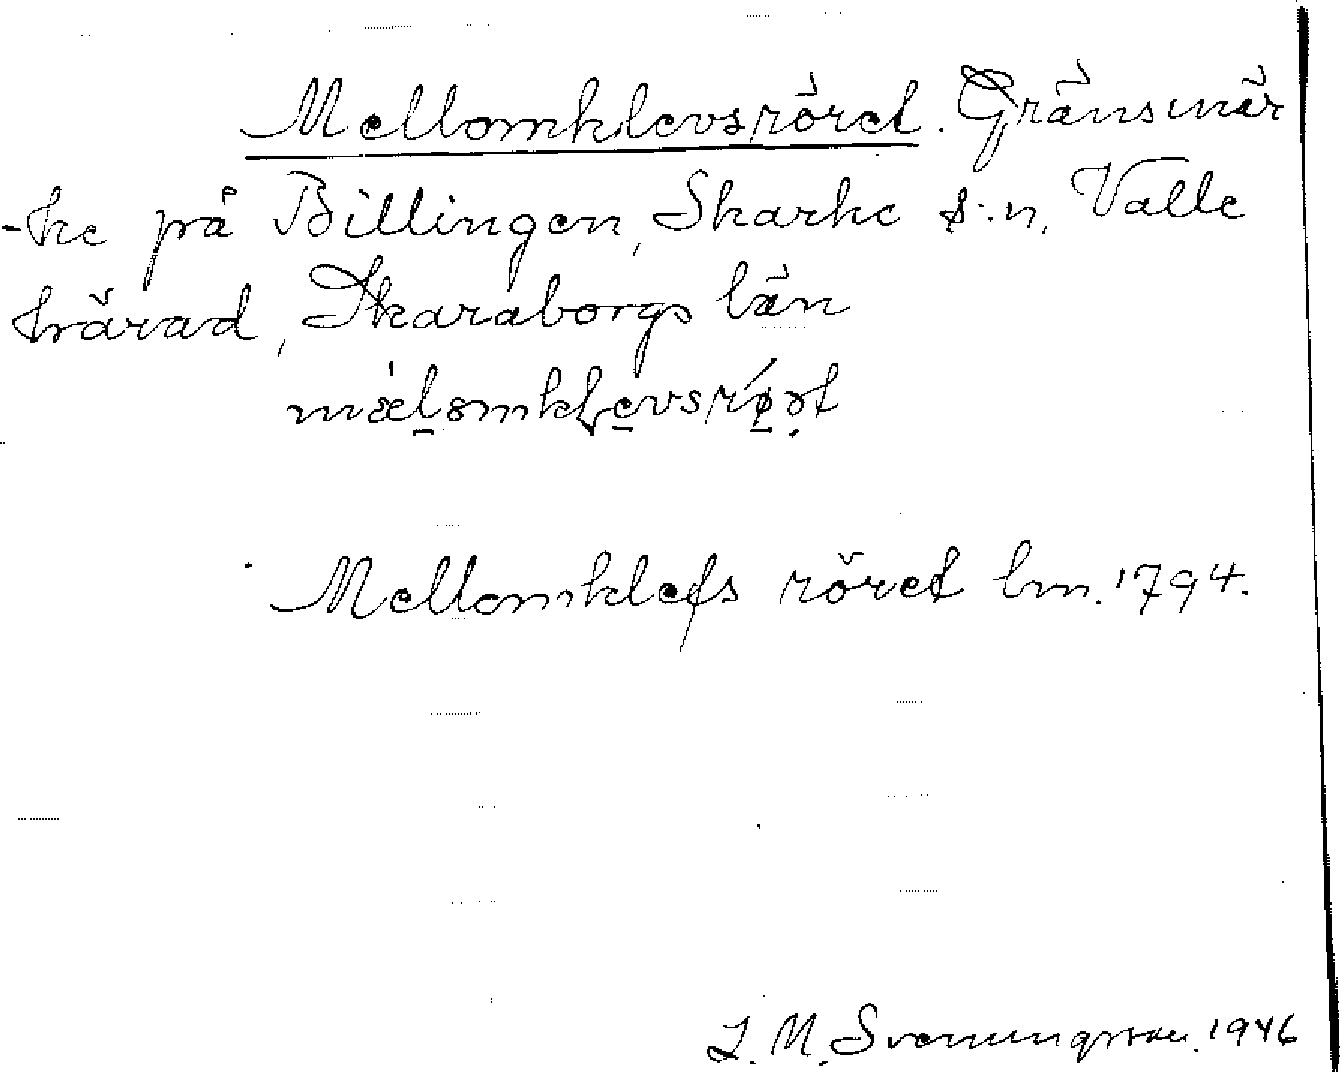 Mellomklevsröret. Gränsmär
-ke på Billingen, Skarke s:n, Valle
härad, Skaraborgs län
Mellomklefs röret lm. 1794.
L. M. Svenungsson. 1946